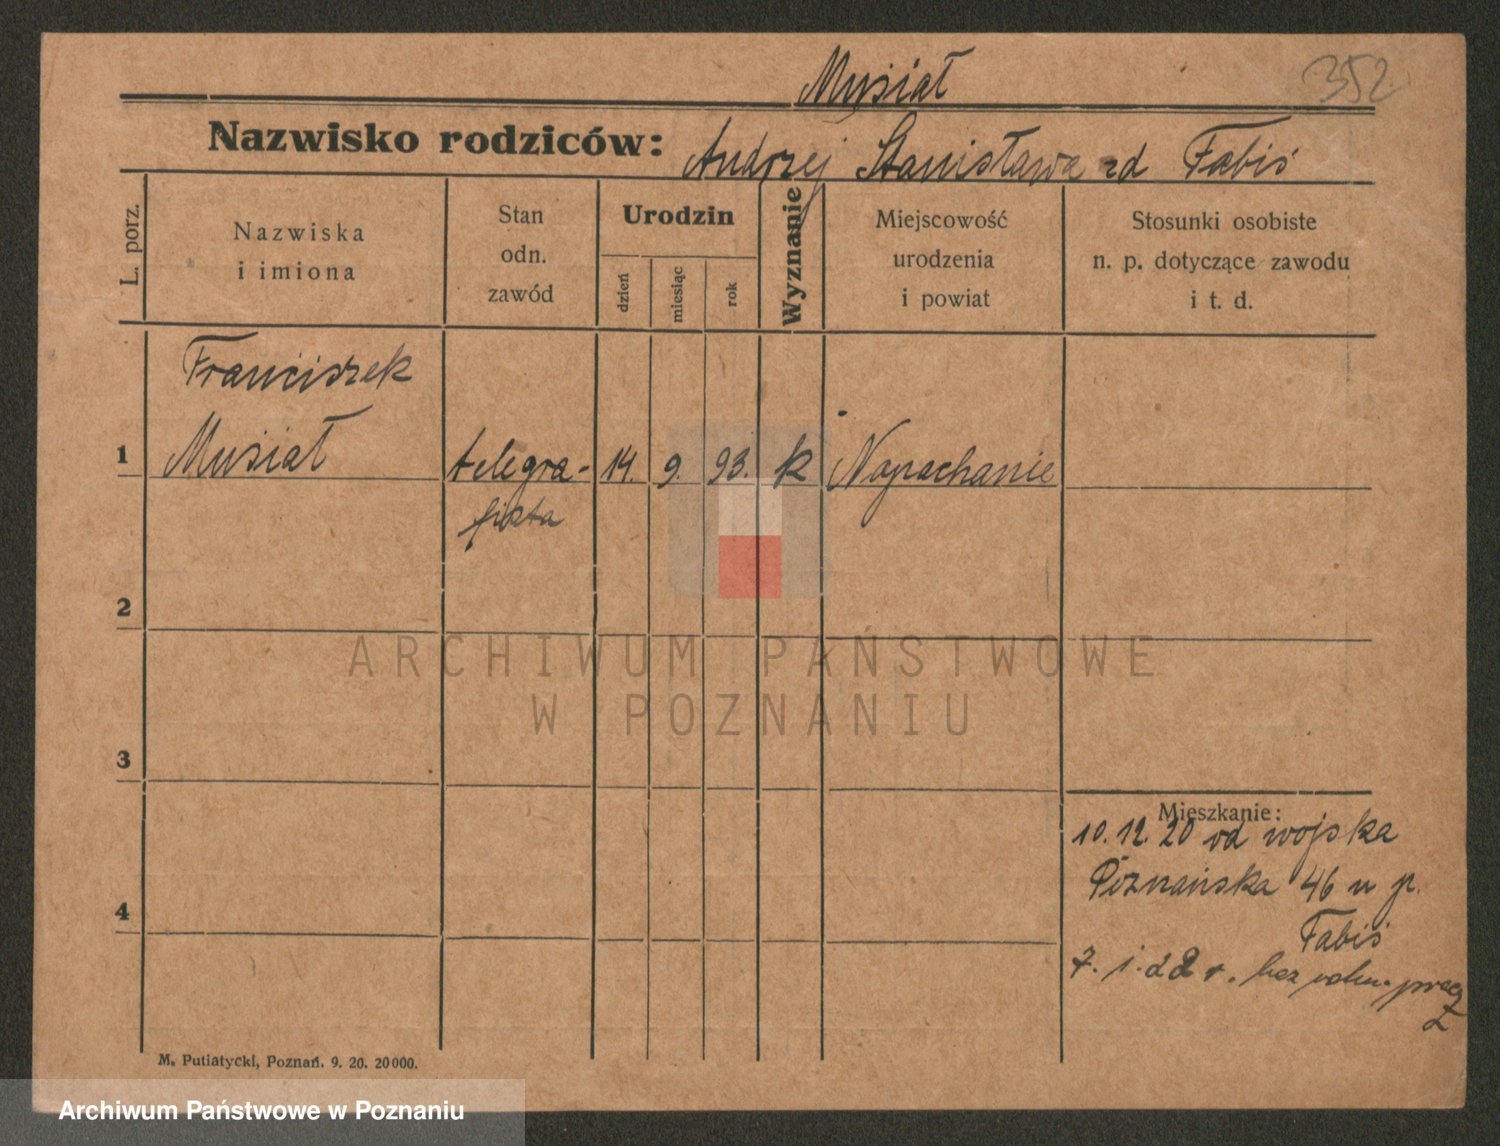 Musiał
352
Nazwisko rodziców: Andrzej Stanisława zd Fabiś
L. porz.
Nazwiska
i imiona
Stan
odn.
zawód
Urodzin
dzień
miesiąc
rok
Wyznanie
Miejscowość
urodzenia
i powiat
Stosunki osobiste
n. p. dotyczące zawodu
i t. d.
Franciszek
1 Musiał telegra- 14. 9. 93. k Napachanie
fista
2
3
Mieszkanie:
10. 12. 20 od wojska
Poznańska 46 u p.
Fabiś
4
7. 1. 22 r. bez
M. Putiatycki, Poznań. 9. 20. 20000.
ARCHIWUM PAŃSTWOWE
W POZNANIU
Archiwum Państwowe w Poznaniu